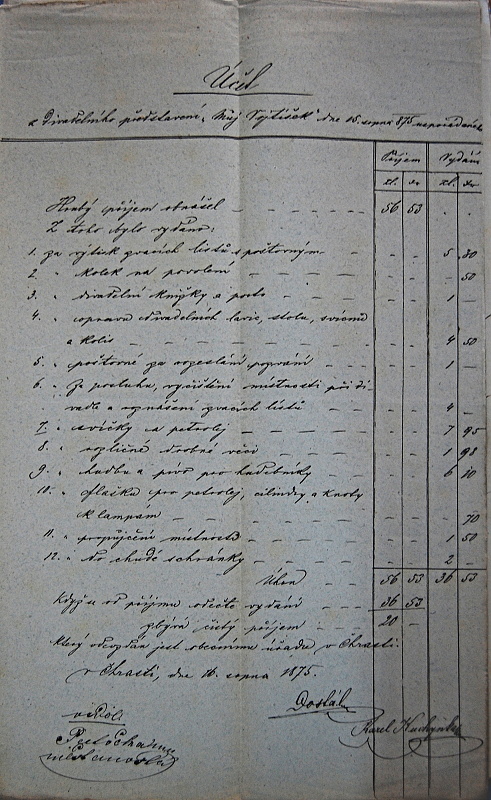 Účet
z divadelního představení „Můj Vojtíšek“ dne 15. srpna 875 uspořádaného
Příjem Vydání
zl. kr zl. kr
Hrubý příjem obnášel 56 53
Z toho bylo vydáno:
1. za výtisk zvacích listů s poštovným 5 30
2. „ kolek na povolení – 50
3. „ divadelní knížky a porto 1 –
4. „ opravu divadelních lavic, stolu, svícnů
a kolis 4 50
5. „ poštovné za rozeslání pozvání 1 –
6. „ Za posluhu, vyčištění místnosti při di-
vadle a roznášení zvacích lístků 4 –
7. „ svíčky a petrolej 7 95
8. „ rozličné drobné věci 1 98
9. „ hudbu a pivo pro hudebníky 6 10
10. „ flašku pro petrolej, cilindry a knoty
k lampám – 70
11. „ propůjčení místnosti 1 50
12. „ do chudé schránky 2 –
Úhrn 56 53 36 53
Když se od příjmu odečte vydání 36 53
zbývá čistý příjem 20 –
který odevzdán jest obecnímu úřadu v Chrasti.
v Chrasti, dne 16. srpna 1875.
Dostál
Karel
viděli